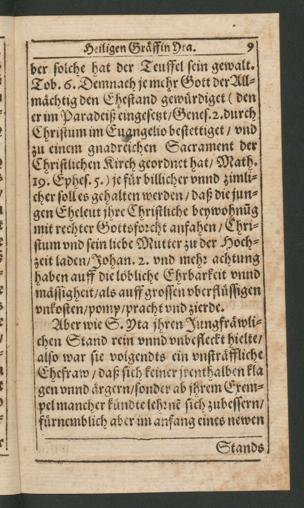 Heiligen Gräffin Yta. 9
ber solche hat der Teuffel sein gewalt.
Tob. 6. Demnach je mehr Gott der All-
mächtig den Ehestand gewürdiget ( den
er im Paradeiß eingesetzt/ Genes. 2. durch
Christum im Euangelio bestettiget / vnd
zu einem gnadreichen Sacrament der
Christlichen Kirch geordnet hat/ Math.
19. Ephes. 5.) je für billicher vnnd zimli-
cher soll es gehalten werden / daß die jun-
gen Eheleut jhre Christliche beywohnūg
mit rechter Gottsforcht anfahen / Chri-
stum vnd sein liebe Mutter zu der Hoch-
zeit laden/ Johan. 2. vnd mehr achtung
haben auff die löbliche Ehrbarkeit vnnd
mässigkeit/ als auff grossen vberflüssigen
vnkosten/ pomp/ pracht vnd zierde.
Aber wie S. Yta jhren Jungfräwli-
chen Stand rein vnnd vnbefleckt hielte/
also war sie volgendts ein vnsträffliche
Ehefraw / daß sich keiner jrenthalben kla
gen vnnd ärgern/ sonder ab jhrem Exem-
pel mancher kündte lehrnē sich zubessern/
fürnemblich aber im anfang eines newen
Stands